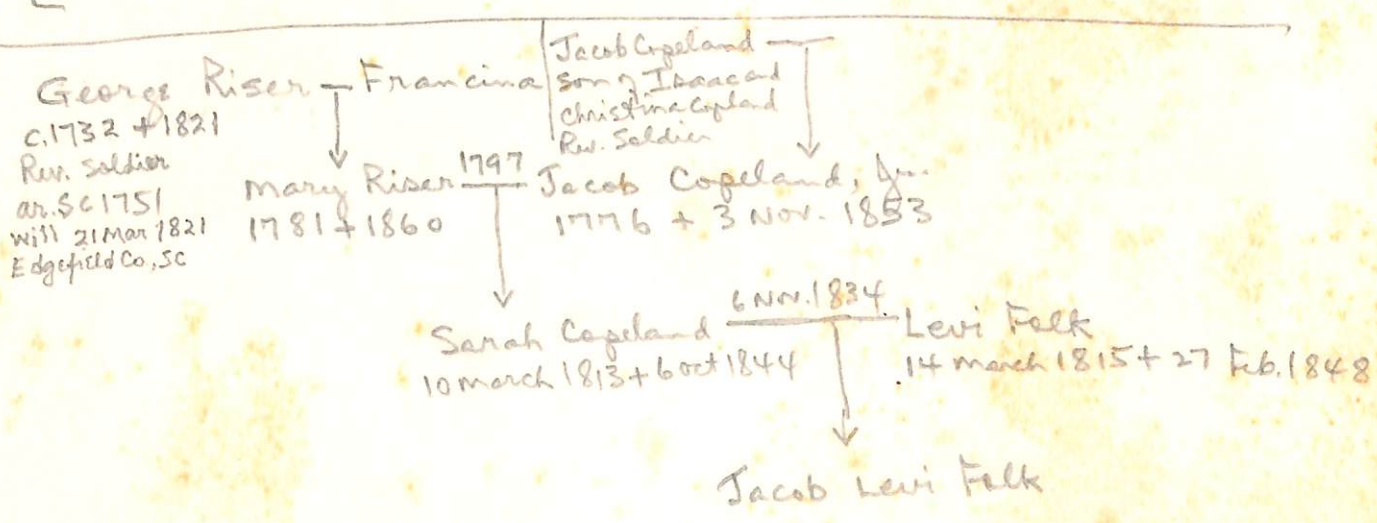 George Riser — Francina
c.1732 + 1821
Rev. Soldier
ar. SC 1751
will 21 Mar 1821
Edgefield Co., SC
Jacob Copeland —
son of Isaac and
Christina Copland
Rev. Soldier
Mary Riser 1797 Jacob Copeland, Jr.
1781 + 1860 1776 + 3 Nov. 1853
Sarah Copeland 6 Nov. 1834 Levi Folk
10 March 1813 + 6 Oct 1844 14 March 1815 + 27 Feb. 1848
Jacob Levi Folk